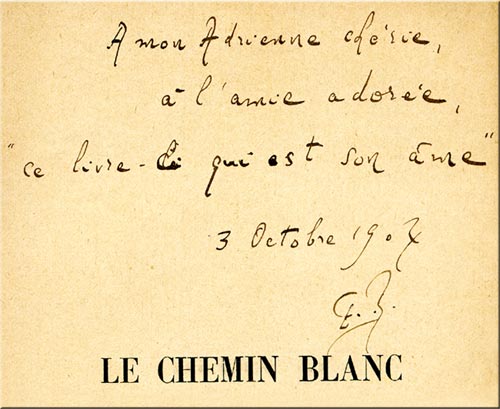 A mon Adrienne chérie,
à l'amie adorée,
"ce livre-ci qui est son âme"
3 Octobre 1907
LE CHEMIN BLANC